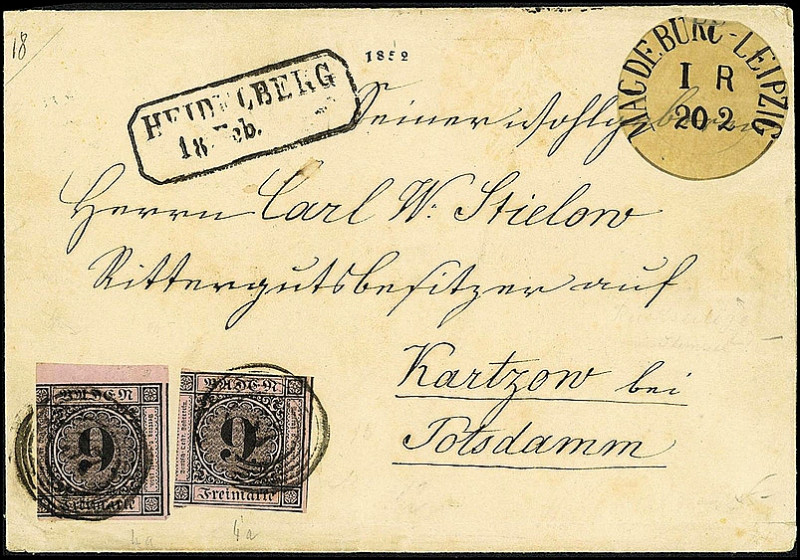 18
1852
HEIDELBERG
18 Feb.
MAGDEBURG-LEIPZIG
I R
20 2
Seiner Wohlgeboren
Herrn Carl W. Stielow
Rittergutsbesitzer auf
Kartzow bei
Potsdamm
BADEN
9
Freimarke
BADEN
9
Freimarke
4a
4a